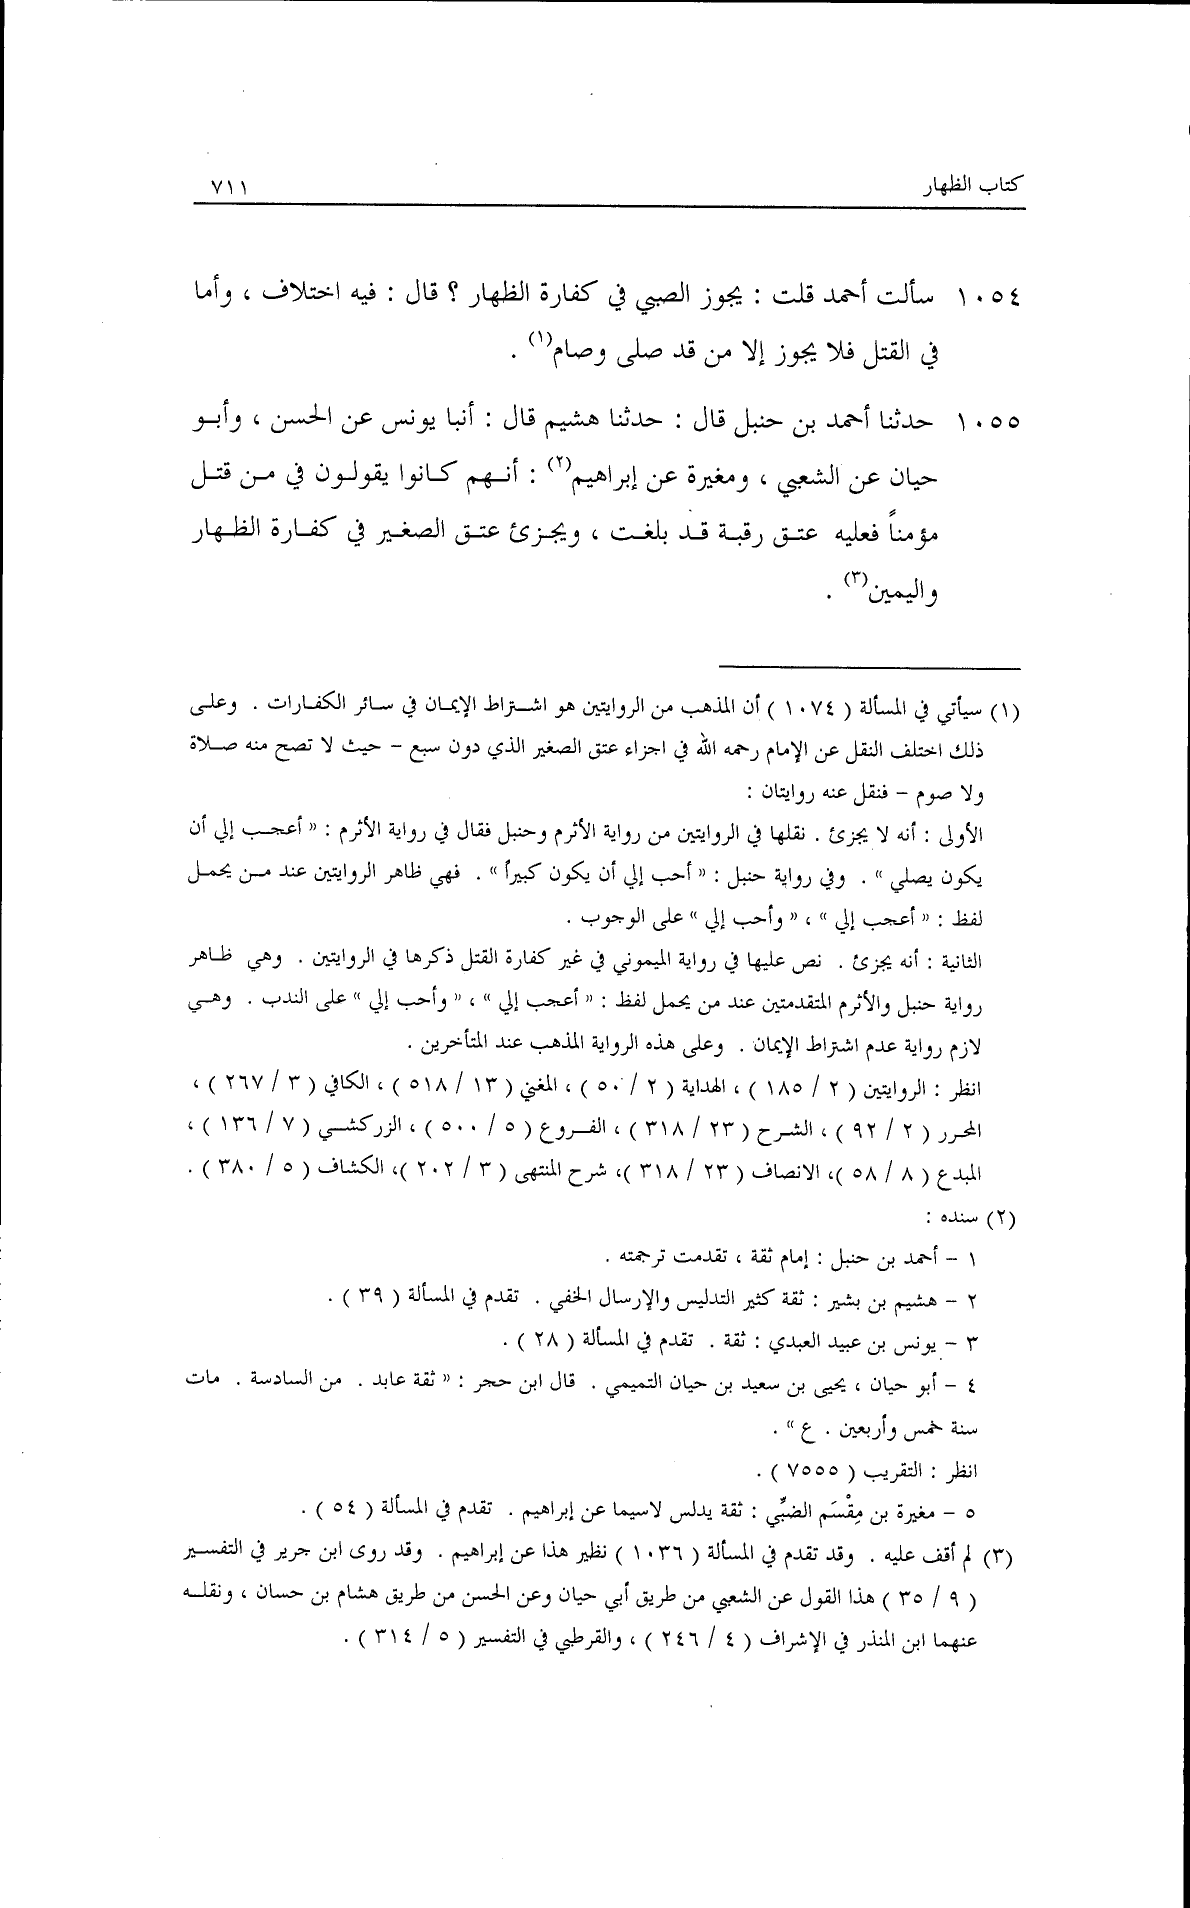 كتاب الظهار ٧١١
١٠٥٤ سألت أحمد قلت : يجوز الصبي في كفارة الظهار ؟ قال : فيه اختلاف ، وأما
في القتل فلا يجوز إلا من قد صلى وصام(١) .
١٠٥٥ حدثنا أحمد بن حنبل قال : حدثنا هشيم قال : أنبا يونس عن الحسن ، وأبو
حيان عن الشعبي ، ومغيرة عن إبراهيم(٢) : أنهم كانوا يقولون في من قتل
مؤمناً فعليه عتق رقبة قد بلغت ، ويجزئ عتق الصغير في كفارة الظهار
واليمين(٣) .
(١) سيأتي في المسألة ( ١٠٧٤ ) أن المذهب من الروايتين هو اشتراط الإيمان في سائر الكفارات . وعلى
ذلك اختلف النقل عن الإمام رحمه الله في اجزاء عتق الصغير الذي دون سبع – حيث لا تصح منه صلاة
ولا صوم – فنقل عنه روايتان :
الأولى : أنه لا يجزئ . نقلها في الروايتين من رواية الأثرم وحنبل فقال في رواية الأثرم : « أعجب إلي أن
يكون يصلي » . وفي رواية حنبل : « أحب إلي أن يكون كبيراً » . فهي ظاهر الروايتين عند من يحمل
لفظ : « أعجب إلي » ، « وأحب إلي » على الوجوب .
الثانية : أنه يجزئ . نص عليها في رواية الميموني في غير كفارة القتل ذكرها في الروايتين . وهي ظاهر
رواية حنبل والأثرم المتقدمتين عند من يحمل لفظ : « أعجب إلي » ، « وأحب إلي » على الندب . وهي
لازم رواية عدم اشتراط الإيمان . وعلى هذه الرواية المذهب عند المتأخرين .
انظر : الروايتين ( ٢ / ١٨٥ ) ، الهداية ( ٢ / ٥٠ ) ، المغني ( ١٣ / ٥١٨ ) ، الكافي ( ٣ / ٢٦٧ ) ،
المحرر ( ٢ / ٩٢ ) ، الشرح ( ٢٣ / ٣١٨ ) ، الفروع ( ٥ / ٥٠٠ ) ، الزركشي ( ٧ / ١٣٦ ) ،
المبدع ( ٨ / ٥٨ )، الانصاف ( ٢٣ / ٣١٨ )، شرح المنتهى ( ٣ / ٢٠٢ )، الكشاف ( ٥ / ٣٨٠ ) .
(٢) سنده :
١ – أحمد بن حنبل : إمام ثقة ، تقدمت ترجمته .
٢ – هشيم بن بشير : ثقة كثير التدليس والإرسال الخفي . تقدم في المسألة ( ٣٩ ) .
٣ – يونس بن عبيد العبدي : ثقة . تقدم في المسألة ( ٢٨ ) .
٤ – أبو حيان ، يحيى بن سعيد بن حيان التميمي . قال ابن حجر : « ثقة عابد . من السادسة . مات
سنة خمس وأربعين . ع » .
انظر : التقريب ( ٧٥٥٥ ) .
٥ – مغيرة بن مِقْسَم الضبِّي : ثقة يدلس لاسيما عن إبراهيم . تقدم في المسألة ( ٥٤ ) .
(٣) لم أقف عليه . وقد تقدم في المسألة ( ١٠٣٦ ) نظير هذا عن إبراهيم . وقد روى ابن جرير في التفسير
( ٩ / ٣٥ ) هذا القول عن الشعبي من طريق أبي حيان وعن الحسن من طريق هشام بن حسان ، ونقله
عنهما ابن المنذر في الإشراف ( ٤ / ٢٤٦ ) ، والقرطبي في التفسير ( ٥ / ٣١٤ ) .